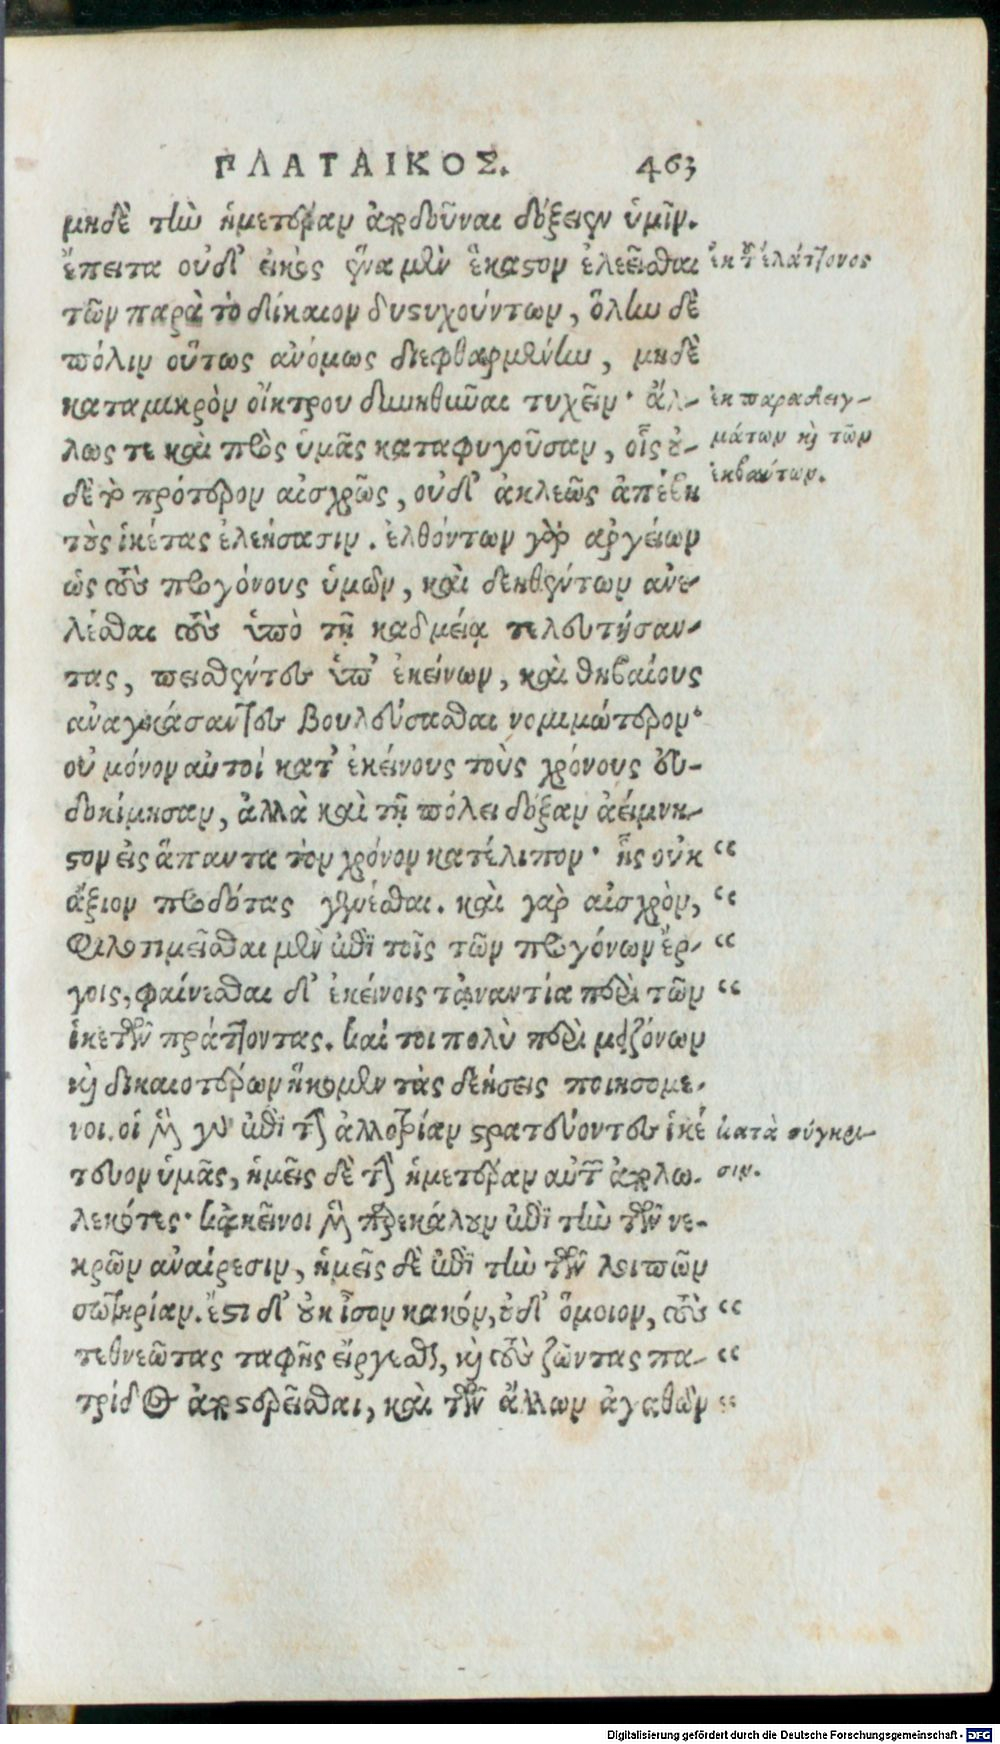 ΠΛΑΤΑΙΚΟΣ. 463
μηδὲ τὴν ἡμετέραν ἀποδοῦναι δόξειεν ὑμῖν.
ἔπειτα οὐδ' εἰκὸς ἕνα μὲν ἕκαστον ἐλεεῖσθαι
τῶν παρὰ τὸ δίκαιον δυστυχούντων, ὅλην δὲ
πόλιν οὕτως ἀνόμως διεφθαρμένην, μηδὲ
καταμικρὸν οἴκτου δυνηθῆναι τυχεῖν· ἄλ-
λως τε καὶ πρὸς ὑμᾶς καταφυγοῦσαν, οἷς οὐ-
δὲ τὸ πρότερον αἰσχρῶς, οὐδ' ἀκλεῶς ἀπέβη
τοὺς ἱκέτας ἐλεήσασιν. ἐλθόντων γὰρ ἀργείων
ὡς τοὺς προγόνους ὑμῶν, καὶ δεηθέντων ἀνε-
λέσθαι τοὺς ὑπὸ τῇ καδμείᾳ τελευτήσαν-
τας, πεισθέντες ὑπ' ἐκείνων, καὶ θηβαίους
ἀναγκάσαντες βουλεύσασθαι νομιμώτερον·
οὐ μόνον αὐτοὶ κατ' ἐκείνους τοὺς χρόνους εὐ-
δοκίμησαν, ἀλλὰ καὶ τῇ πόλει δόξαν ἀείμνη-
στον εἰς ἅπαντα τὸν χρόνον κατέλιπον· ἧς οὐκ “
ἄξιον προδότας γενέσθαι. καὶ γὰρ αἰσχρὸν, “
φιλοτιμεῖσθαι μὲν ἐπὶ τοῖς τῶν προγόνων ἔρ- “
γοις, φαίνεσθαι δ' ἐκείνοις τἀναντία περὶ τῶν “
ἱκετῶν πράττοντας. καί τοι πολὺ περὶ μειζόνων
καὶ δικαιοτέρων ἥκομεν τὰς δεήσεις ποιησόμε-
νοι. οἱ μὲν γὰρ ἐπὶ τὴν ἀλλοτρίαν στρατεύοντες ἱκέ
τευον ὑμᾶς, ἡμεῖς δὲ τὴν ἡμετέραν αὐτῶν ἀπολω-
λεκότες· κἀκεῖνοι μὲν παρεκάλουν ἐπὶ τὴν τῶν νε-
κρῶν ἀναίρεσιν, ἡμεῖς δὲ ἐπὶ τὴν τῶν λοιπῶν
σωτηρίαν. ἔστι δ' οὐκ ἴσον κακόν, οὐδ' ὅμοιον, τοὺς “
τεθνεῶτας ταφῆς εἴργεσθαι, καὶ τοὺς ζῶντας πα- “
τρίδος ἀποστερεῖσθαι, καὶ τῶν ἄλλων ἀγαθῶν “
ἐκ τοῦ ἐλάττονος
ἐκ παραδειγ-
μάτων καὶ τῶν
ἐκβάντων.
κατὰ σύγκρι-
σιν.
Digitalisierung gefördert durch die Deutsche Forschungsgemeinschaft - DFG